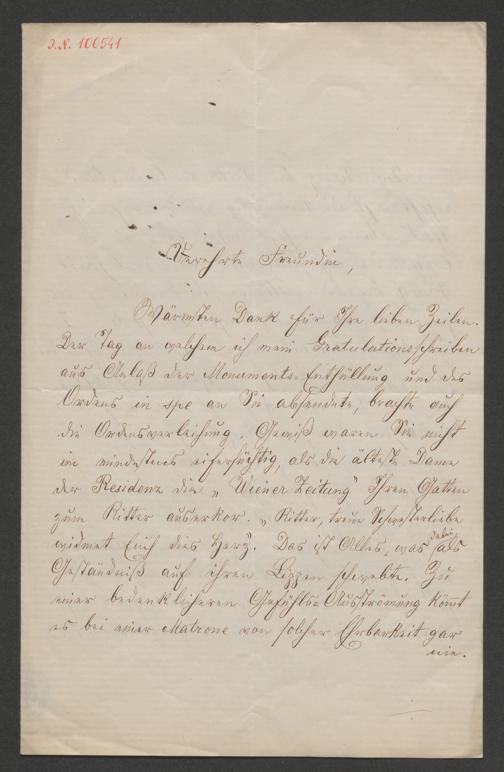 J.N. 100541
Verehrte Freundin,
Wärmsten Dank für Ihre lieben Zeilen.
Der Tag an welchem ich mein Gratulationsschreiben
aus Anlaß der Monuments-Enthüllung und des
Ordens in spe an Sie absandte, brachte auch
die Ordensverleihung. Gewiß waren Sie nicht
im mindestens eifersüchtig, als die älteste Dame
der Residenz die „Wiener Zeitung" Ihren Gatten
zum Ritter auserkor. „Ritter, treue Schwesterliebe
widmet Euch dies Herz". Das ist Alles, was dabei als
Geständniß auf ihren Lippen schwebte. Zu
einer bedenklicheren Gefühls-Ausströmung kömt
es bei einer Matrone von solcher Ehrbarkeit gar
nie.